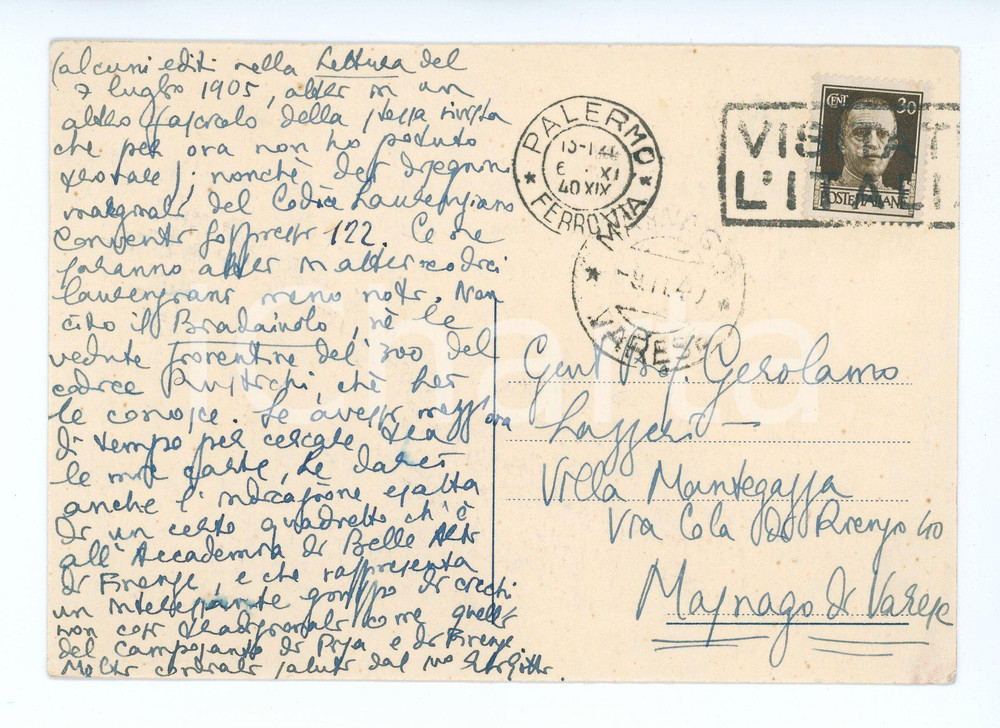 (alcuni editi nella Lettura del
7 luglio 1905, altri in un
altro fascicolo della stessa rivista
che per ora non ho potuto
trovare); nonchè dei disegnini
marginali del Codice Laurenziano
Conventi Soppressi 122. Ce ne
saranno altri in altri codici
laurenziani meno noti. Non
cito il Biadaiuolo, nè le
vedute fiorentine del '300 del
codice Rustichi, chè Lei
le conosce. Se avessi maggior
di tempo per cercare tra
le mie carte, Le darei
anche l'indicazione esatta
di un certo quadretto ch'è
all'Accademia di Belle Arti
di Firenze, e che rappresenta
un interessante gruppo di ciechi
non così tradizionali come quelli
del camposanto di Pisa e di Firenze
Molti cordiali saluti dal suo
PALERMO
FERROVIA
40 XIX
CENT 30
POSTE ITALIANE
VISITATE
L'ITALIA
-9.11.40
VARESE
Gent. Prof. Gerolamo
Lazzeri —
Villa Mantegazza
Via Cola di Rienzo 40
Masnago di Varese
iCharta